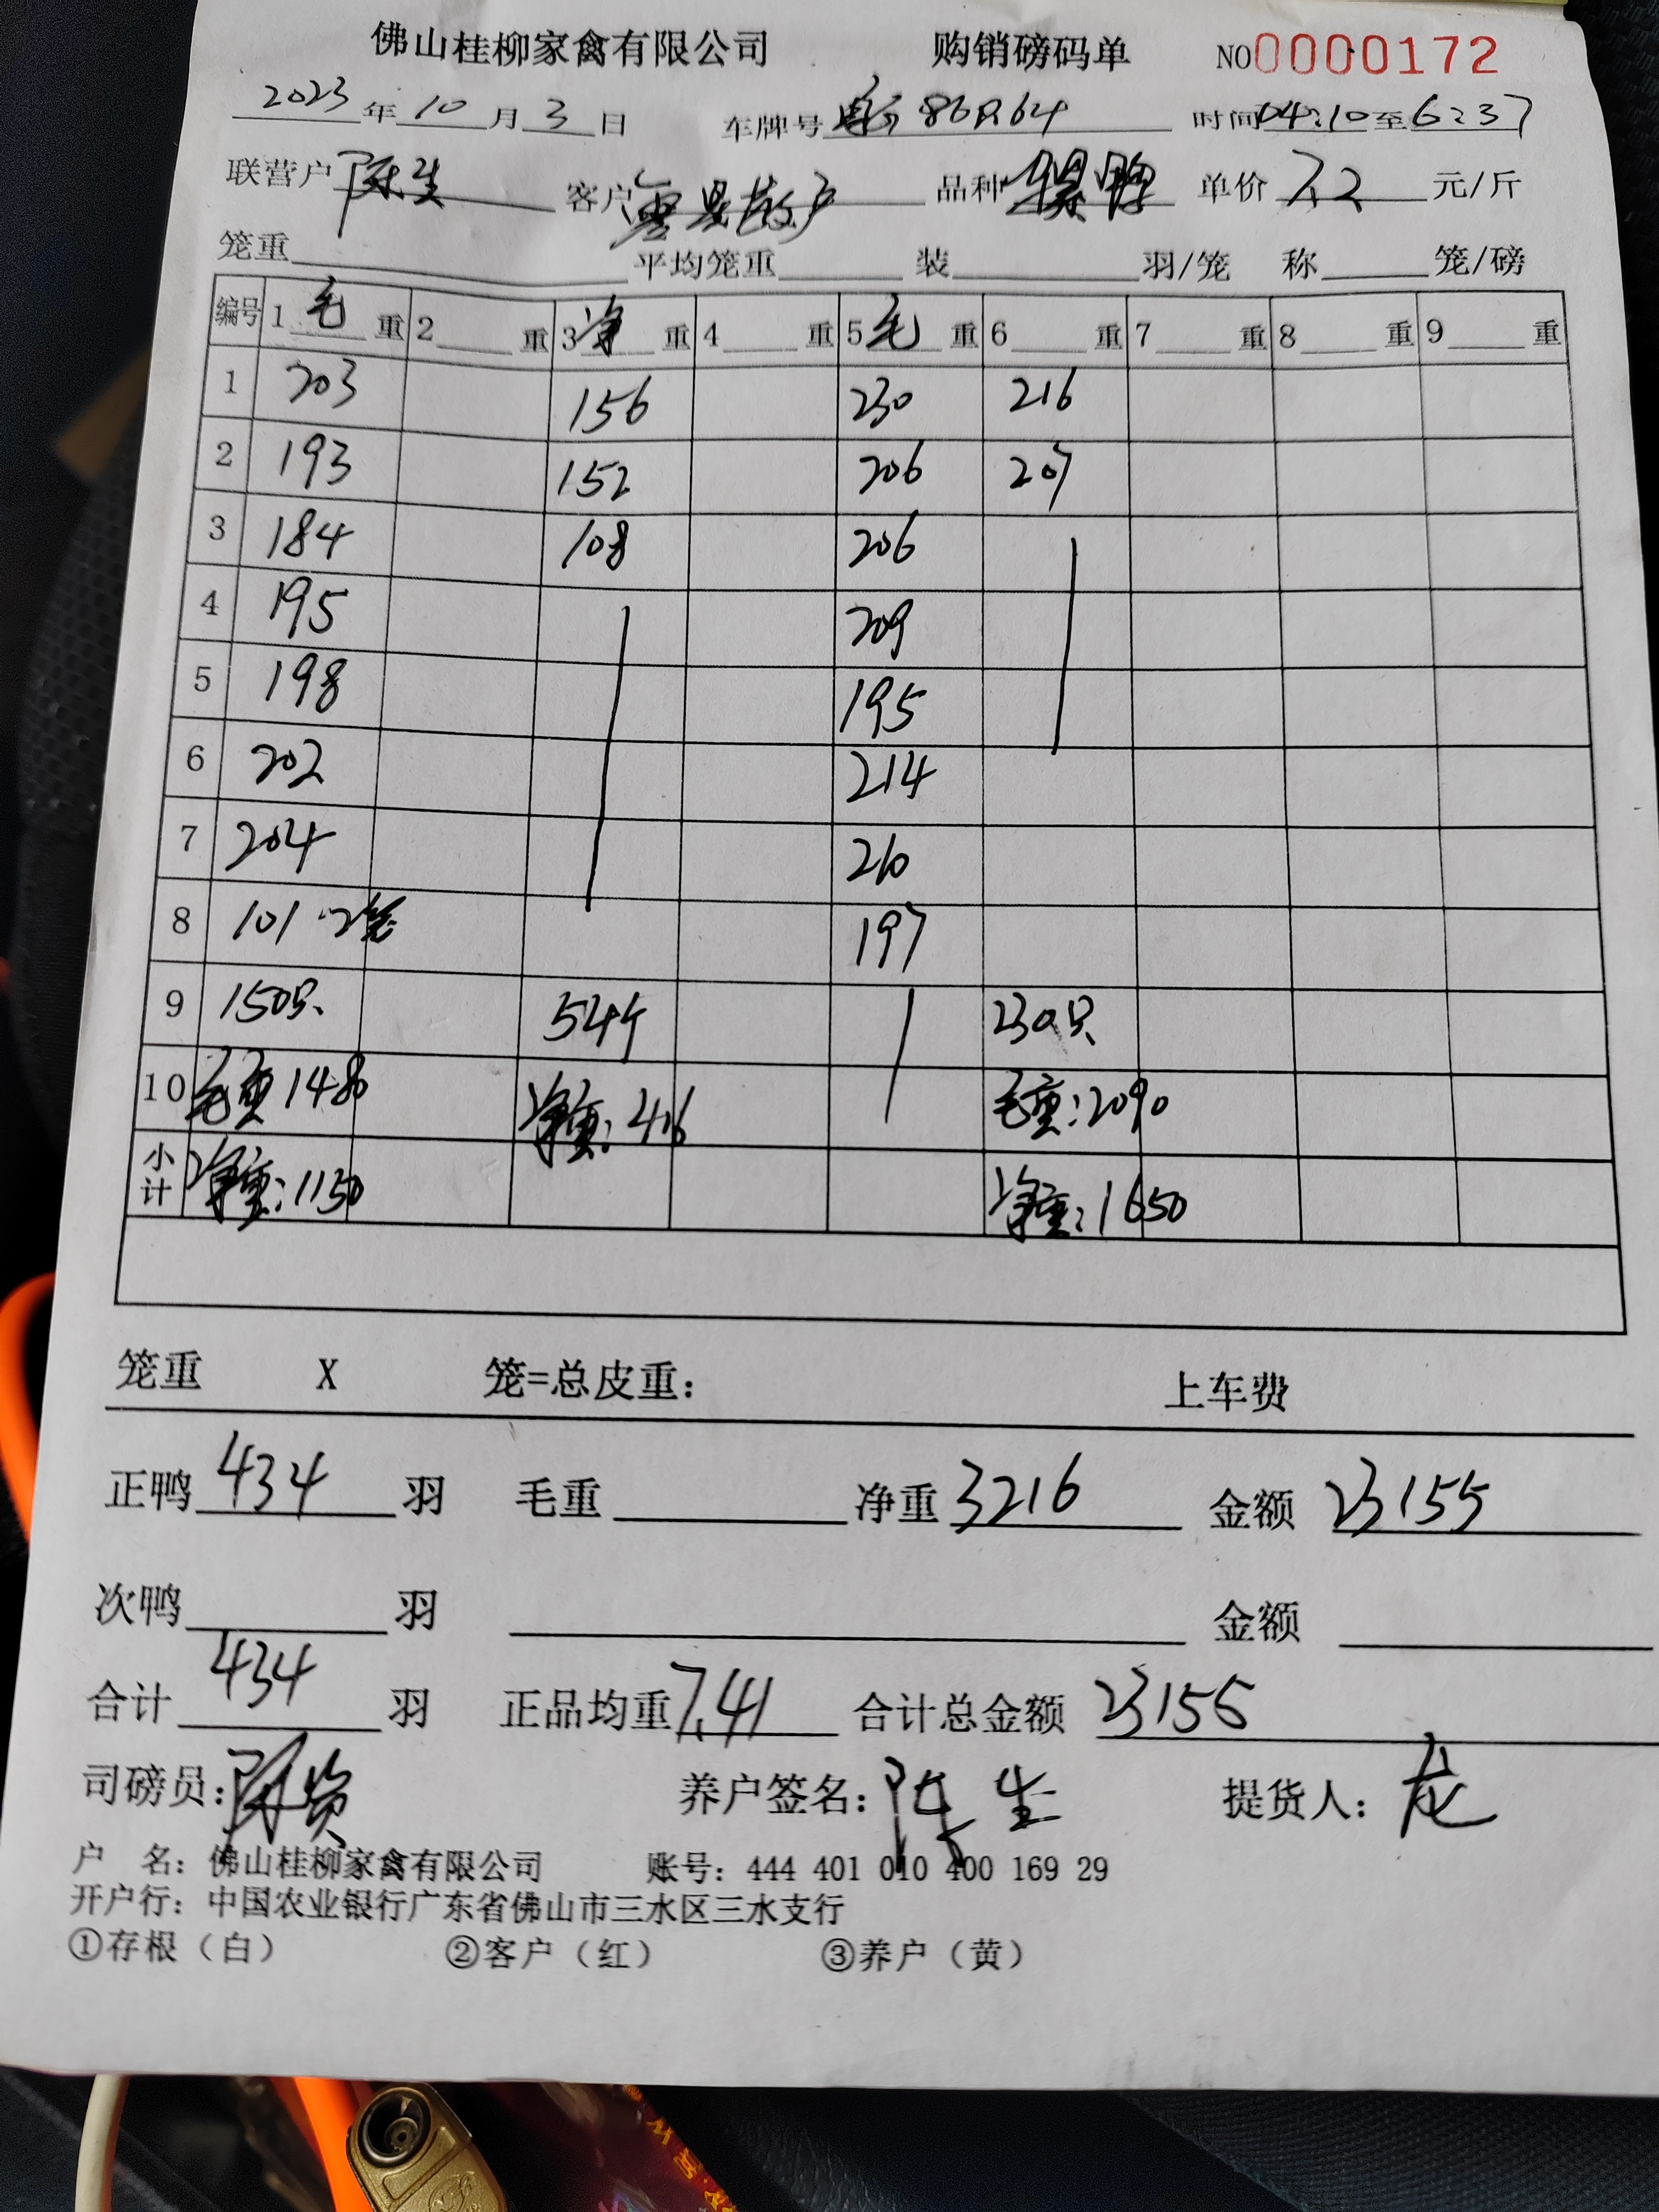 佛山桂柳家禽有限公司 购销磅码单 NO0000172
2023年10月3日 车牌号 86R64 时间04:10至6:37
联营户 陈生 客户 散户 品种 单价 7.2 元/斤
笼重 平均笼重 装 羽/笼 称 笼/磅
编号 1毛重 2重 3净重 4重 5毛重 6重 7重 8重 9重
1 203 156 230 216
2 193 152 206 207
3 184 108 206
4 195 209
5 198 195
6 202 214
7 204 210
8 101 2笼 197
9 150只 54个 230只
10 毛重1480 净重:416 毛重:2090
小计 净重:1150 净重:1650
笼重 X 笼=总皮重: 上车费
正鸭 434 羽 毛重 净重 3216 金额 23155
次鸭 羽 金额
合计 434 羽 正品均重 7.41 合计总金额 23155
司磅员: 陈 养户签名: 陈生 提货人: 龙
户 名: 佛山桂柳家禽有限公司 账号: 444 401 010 400 169 29
开户行: 中国农业银行广东省佛山市三水区三水支行
①存根（白） ②客户（红） ③养户（黄）